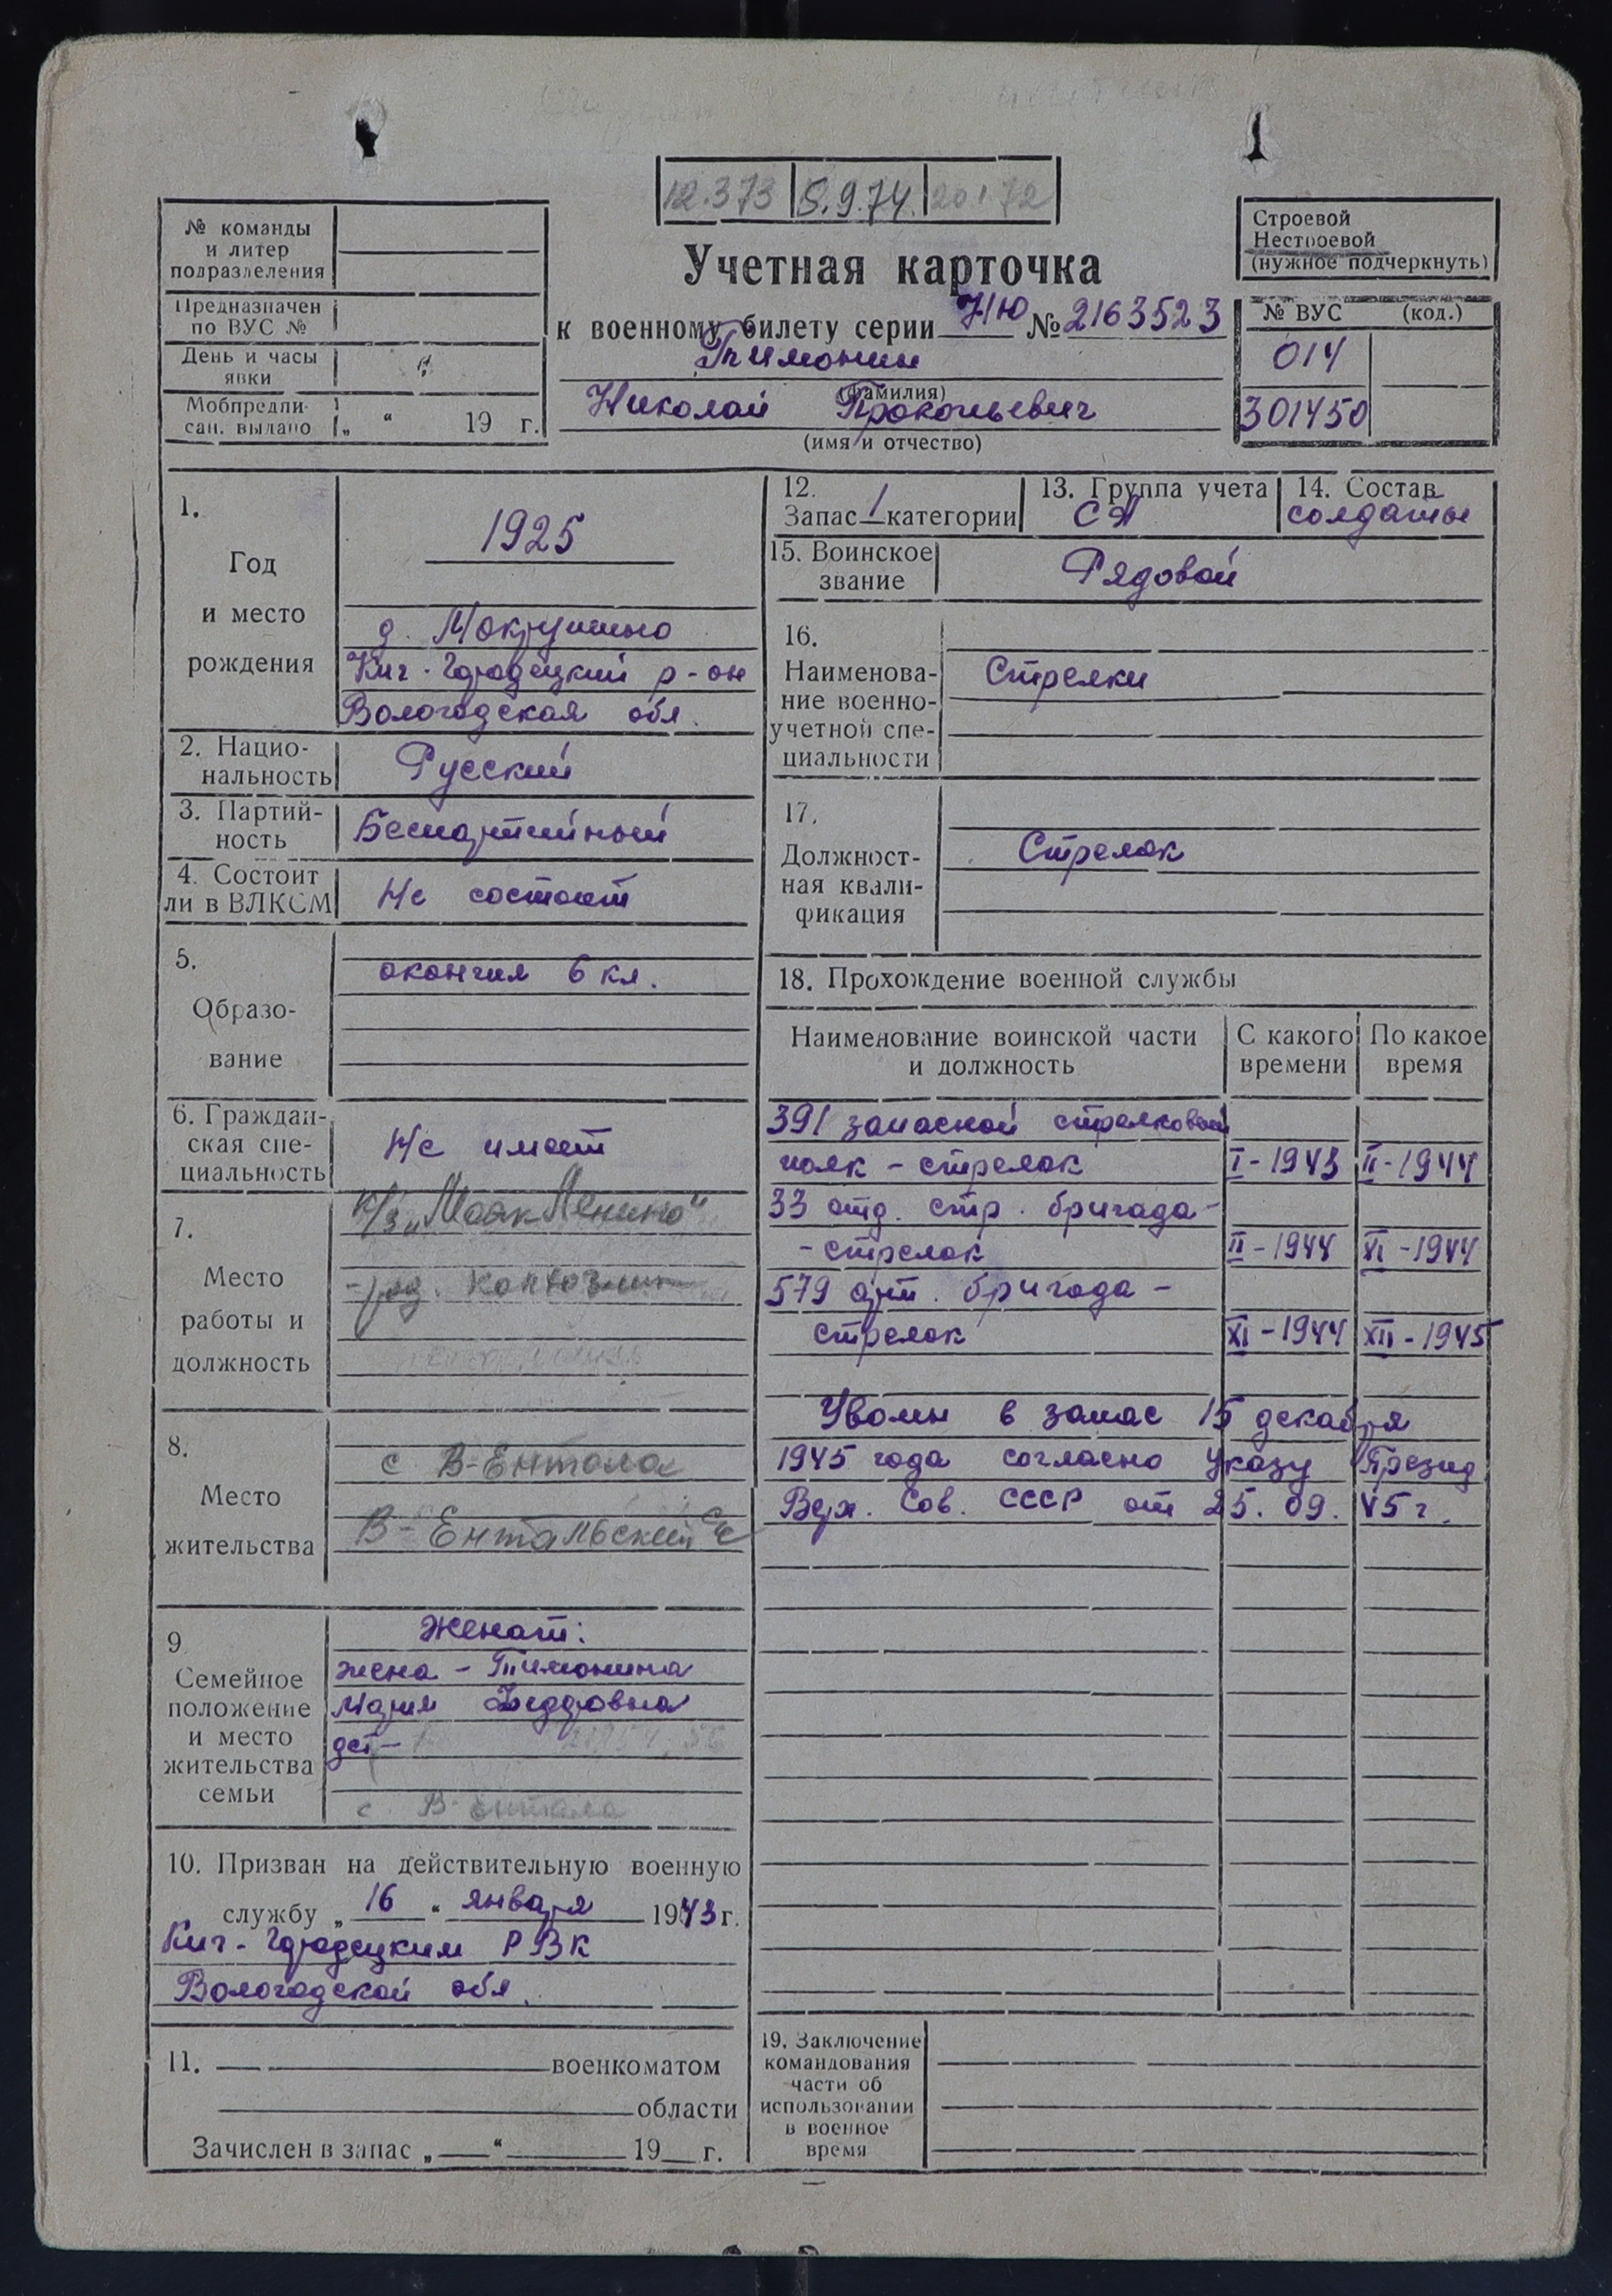 12.3.73 5.9.74. 20.1.72
№ команды
и литер
подразделения
Предназначен
по ВУС №
День и часы
явки
Мобпредпи-
сан. выдано „ “ 19 г.
Учетная карточка
к военному билету серии НЮ № 2163523
Тимонин
(фамилия)
Николай Прокопьевич
(имя и отчество)
Строевой
Нестроевой
(нужное подчеркнуть)
№ ВУС (код.)
014
301450
1.
Год
и место
рождения
1925
д. Мокрушино
Кич-Городецкий р-он
Вологодская обл.
2. Нацио-
нальность
Русский
3. Партий-
ность
Беспартийный
4. Состоит
ли в ВЛКСМ
Не состоит
5.
Образо-
вание
окончил 6 кл.
6. Граждан-
ская спе-
циальность
Не имеет
7.
Место
работы и
должность
к/з „Маяк Ленина“
- ряд. колхозник
8.
Место
жительства
с В-Ентала
В-Ентальский с/с
9
Семейное
положение
и место
жительства
семьи
Женат:
жена - Тимонина
Мария Федоровна
дет -
с. В-Ентала
10. Призван на действительную военную
службу „ 16 “ января 1943 г.
Кич-Городецким РВК
Вологодской обл.
11. военкоматом
области
Зачислен в запас „ “ 19 г.
12.
Запас 1 категории
13. Группа учета
СА
14. Состав
солдаты
15. Воинское
звание
Рядовой
16.
Наименова-
ние военно-
учетной спе-
циальности
Стрелки
17.
Должност-
ная квали-
фикация
Стрелок
18. Прохождение военной службы
Наименование воинской части
и должность
С какого
времени
По какое
время
391 запасной стрелковый
полк - стрелок I-1943 II-1944
33 отд. стр. бригада -
- стрелок II-1944 XI-1944
579 арт. бригада -
стрелок XI-1944 XII-1945
Уволен в запас 15 декабря
1945 года согласно Указу Презид
Верх. Сов. СССР от 25.09.45г.
19. Заключение
командования
части об
использовании
в военное
время